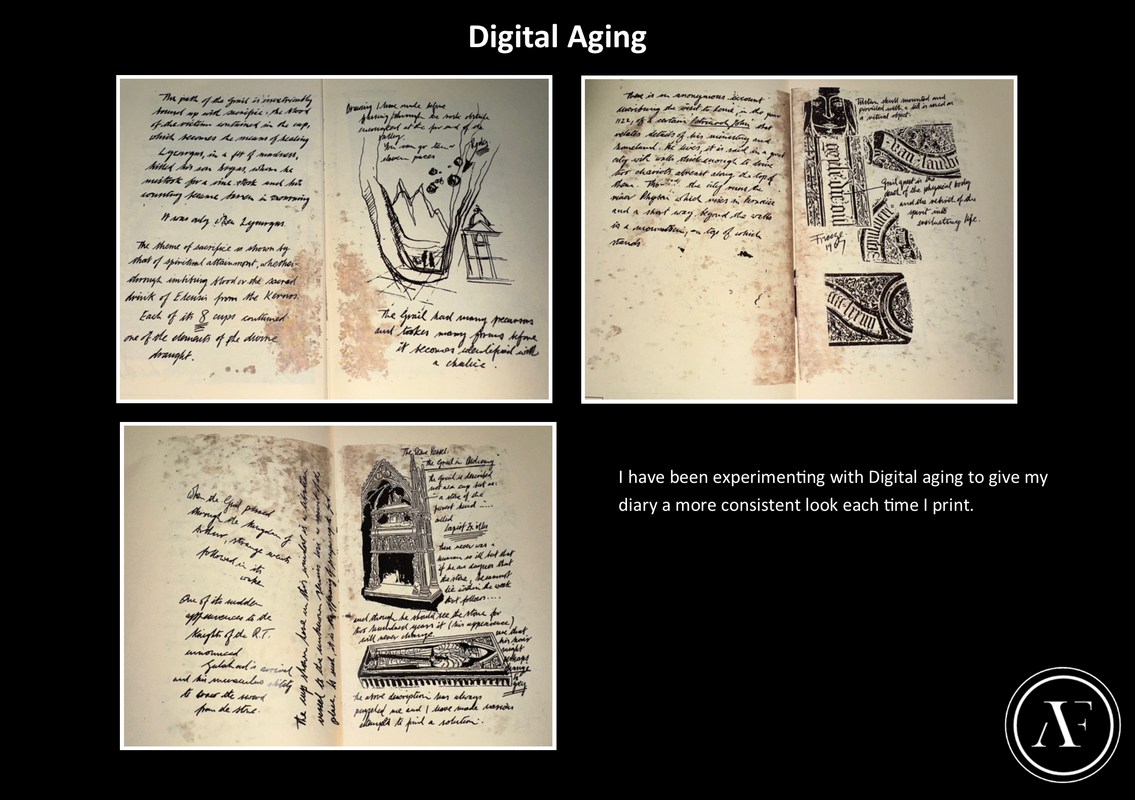 Digital Aging
The path of the Grail is inextricably
bound up with sacrifice, the blood
of the victim contained in the cup,
which becomes the means of healing
Lycurgus, in a fit of madness,
killed his son
mistook for a vine stock and his
country became barren in mourning
It was only when Lycurgus
The theme of sacrifice is shown by
that of spiritual attainment, whether
through imbibing blood or the sacred
drink of Eleusis from the Kernos.
Each of its 8 cups contained
one of the elements of the divine
draught.
Drawing I have made before
passing through the rock
at the far end of the
valley.
You can go ten –
eleven paces
The Grail had many precursors
and takes many forms before
it becomes identified with
a chalice.
There is an anonymous account
describing the visit to Rome, in the year
1122, of a certain Patriarch John that
relates details of his ministry and
homeland. He lives, it is said in a great
city with walls thick enough to drive
two chariots abreast along the top of
them. the city runs the
river which rises in Paradise
and a short way beyond the walls
is a mountain, on top of which
stands
Tibetan skull mounted and
provided with a lid is used as
a ritual object.
Grail quest is the
death of the physical body
and the rebirth of the
spirit into
everlasting life.
Frieze
When the Grail passed
through the kingdom of
Arthur, strange events
followed in its
wake
One of its sudden
appearances to the
Knights of the R.T.
announced
Galahad's arrival
and his miraculous ability
to draw the sword
from the stone.
The Stone Vessel.
the Grail in
the Grail is described
not as a cup but as
a stone of the
purest kind ....
called
Lapsit Exillis
there never was a
human so ill but that
if he one day sees that
the stone, he cannot
die within the week
that follows....
and though he should see the stone for
two hundred years it (his appearance)
will never change
save that
his hair
might
perhaps
change
to
grey
the above description has always
puzzled me and I have made various
attempts to find a solution.
I have been experimenting with Digital aging to give my
diary a more consistent look each time I print.
AF